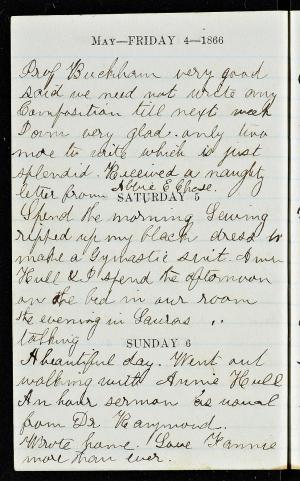 MAY—FRIDAY 4—1866
Prof Buckham very good
said we need not write any
Composition till next week
I am very glad. only two
more to write which is just
splendid. Received a naughty
letter from Abbie E Chase.
SATURDAY 5
Spend the morning Sewing
ripped up my black dress to
make a Gymastic suit. Annie
Hull & I spend the afternoon
on the bed in our room
the evening in Lauras ..
talking
SUNDAY 6
A beautiful day. Went out
walking with Annie Hull
An hour sermon as usual
from Dr. Raymond.
Wrote home. Love Fannie
more than ever.